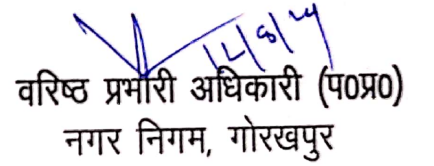 12/8/24
वरिष्ठ प्रभारी अधिकारी (प०प्र०)
नगर निगम, गोरखपुर